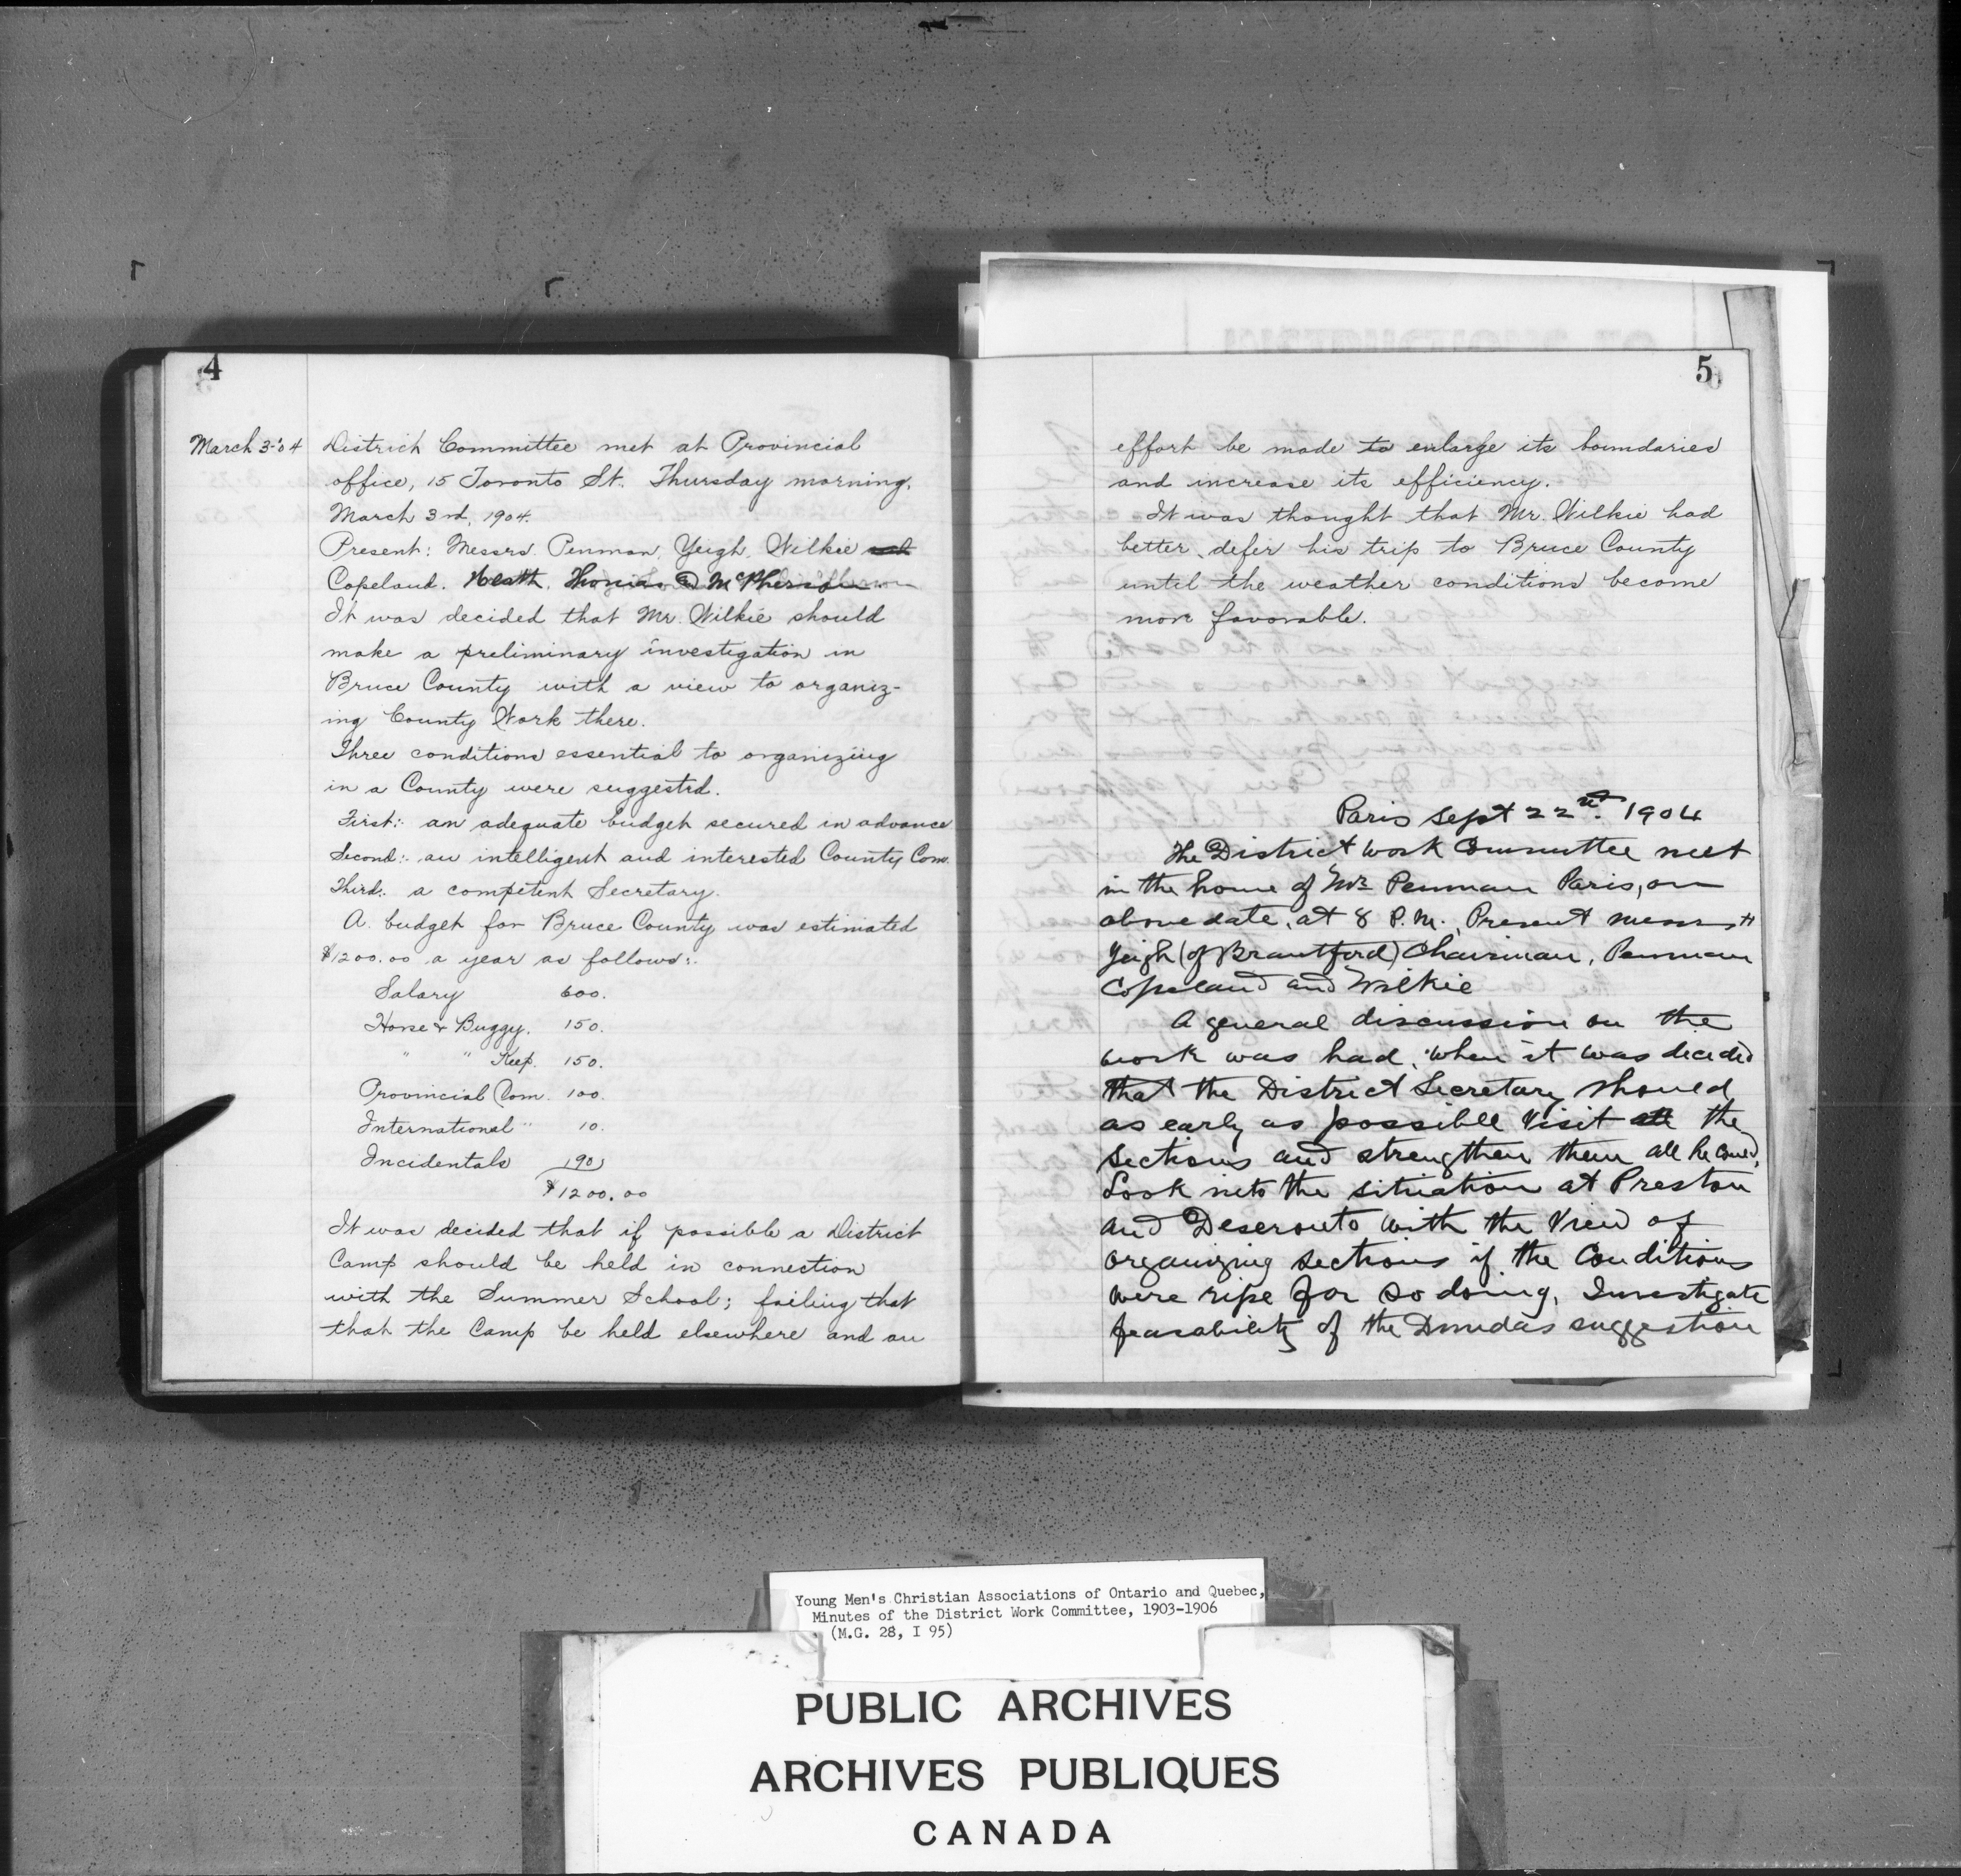 4
March 3-'04
District Committee met at Provincial
office, 15 Toronto St. Thursday morning,
March 3rd, 1904.
Present: Messrs. Penman, Yeigh, Wilkie and
Copeland. Heath, Thomas & McPherson
It was decided that Mr. Wilkie should
make a preliminary investigation in
Bruce County with a view to organiz-
ing County Work there.
Three conditions essential to organizing
in a County were suggested.
First:- an adequate budget secured in advance
Second:- an intelligent and interested County Com.
Third:- a competent Secretary.
A budget for Bruce County was estimated
$1200.00 a year as follows:-
Salary 600.
Horse & Buggy. 150.
" " Keep. 150.
Provincial Com. 100.
International " 10.
Incidentals 190
$1200.00
It was decided that if possible a District
Camp should be held in connection
with the Summer School; failing that
that the Camp be held elsewhere and an
5
effort be made to enlarge its boundaries
and increase its efficiency.
It was thought that Mr. Wilkie had
better defer his trip to Bruce County
until the weather conditions become
more favorable.
Paris Sept 22nd. 1904
The District Work Committee met
in the home of Mr. Penman Paris, on
above date, at 8 P.M. Present Messrs
Yeigh (of Brantford) Chairman, Penman
Copeland and Wilkie
A general discussion on the
work was had, when it was decided
that the District Secretary should
as early as possible visit all the
sections and strengthen them all he could,
Look into the situation at Preston
and Deseronto with the view of
organizing sections if the conditions
were ripe for so doing, Investigate
feasability of the Dundas suggestion
Young Men's Christian Associations of Ontario and Quebec,
Minutes of the District Work Committee, 1903-1906
(M.G. 28, I 95)
PUBLIC ARCHIVES
ARCHIVES PUBLIQUES
CANADA